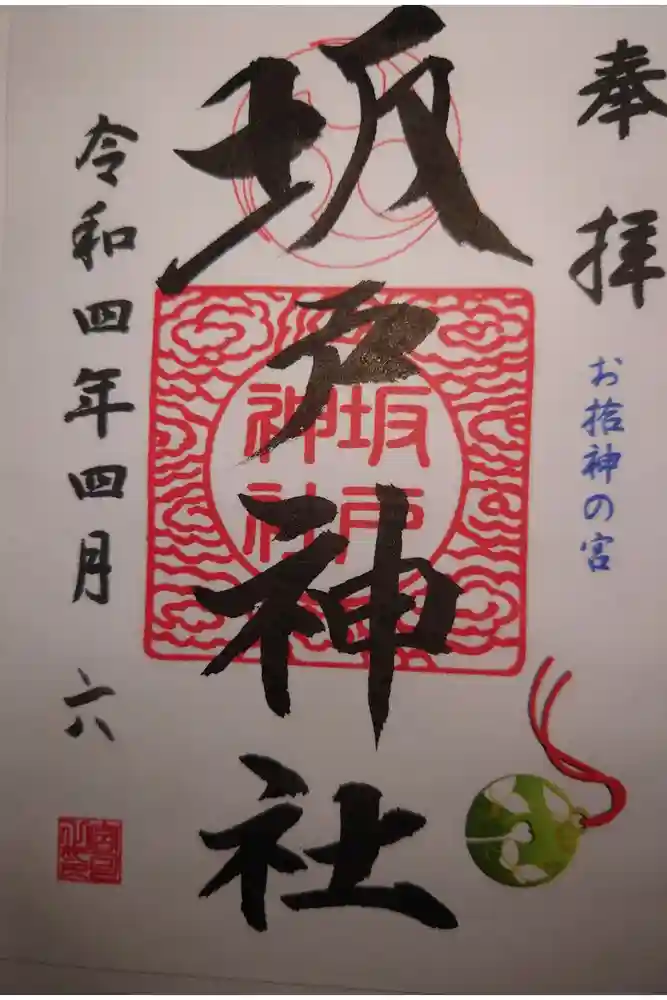 奉拝
お捨神の宮
坂戸神社
坂戸
神社
令和四年四月六